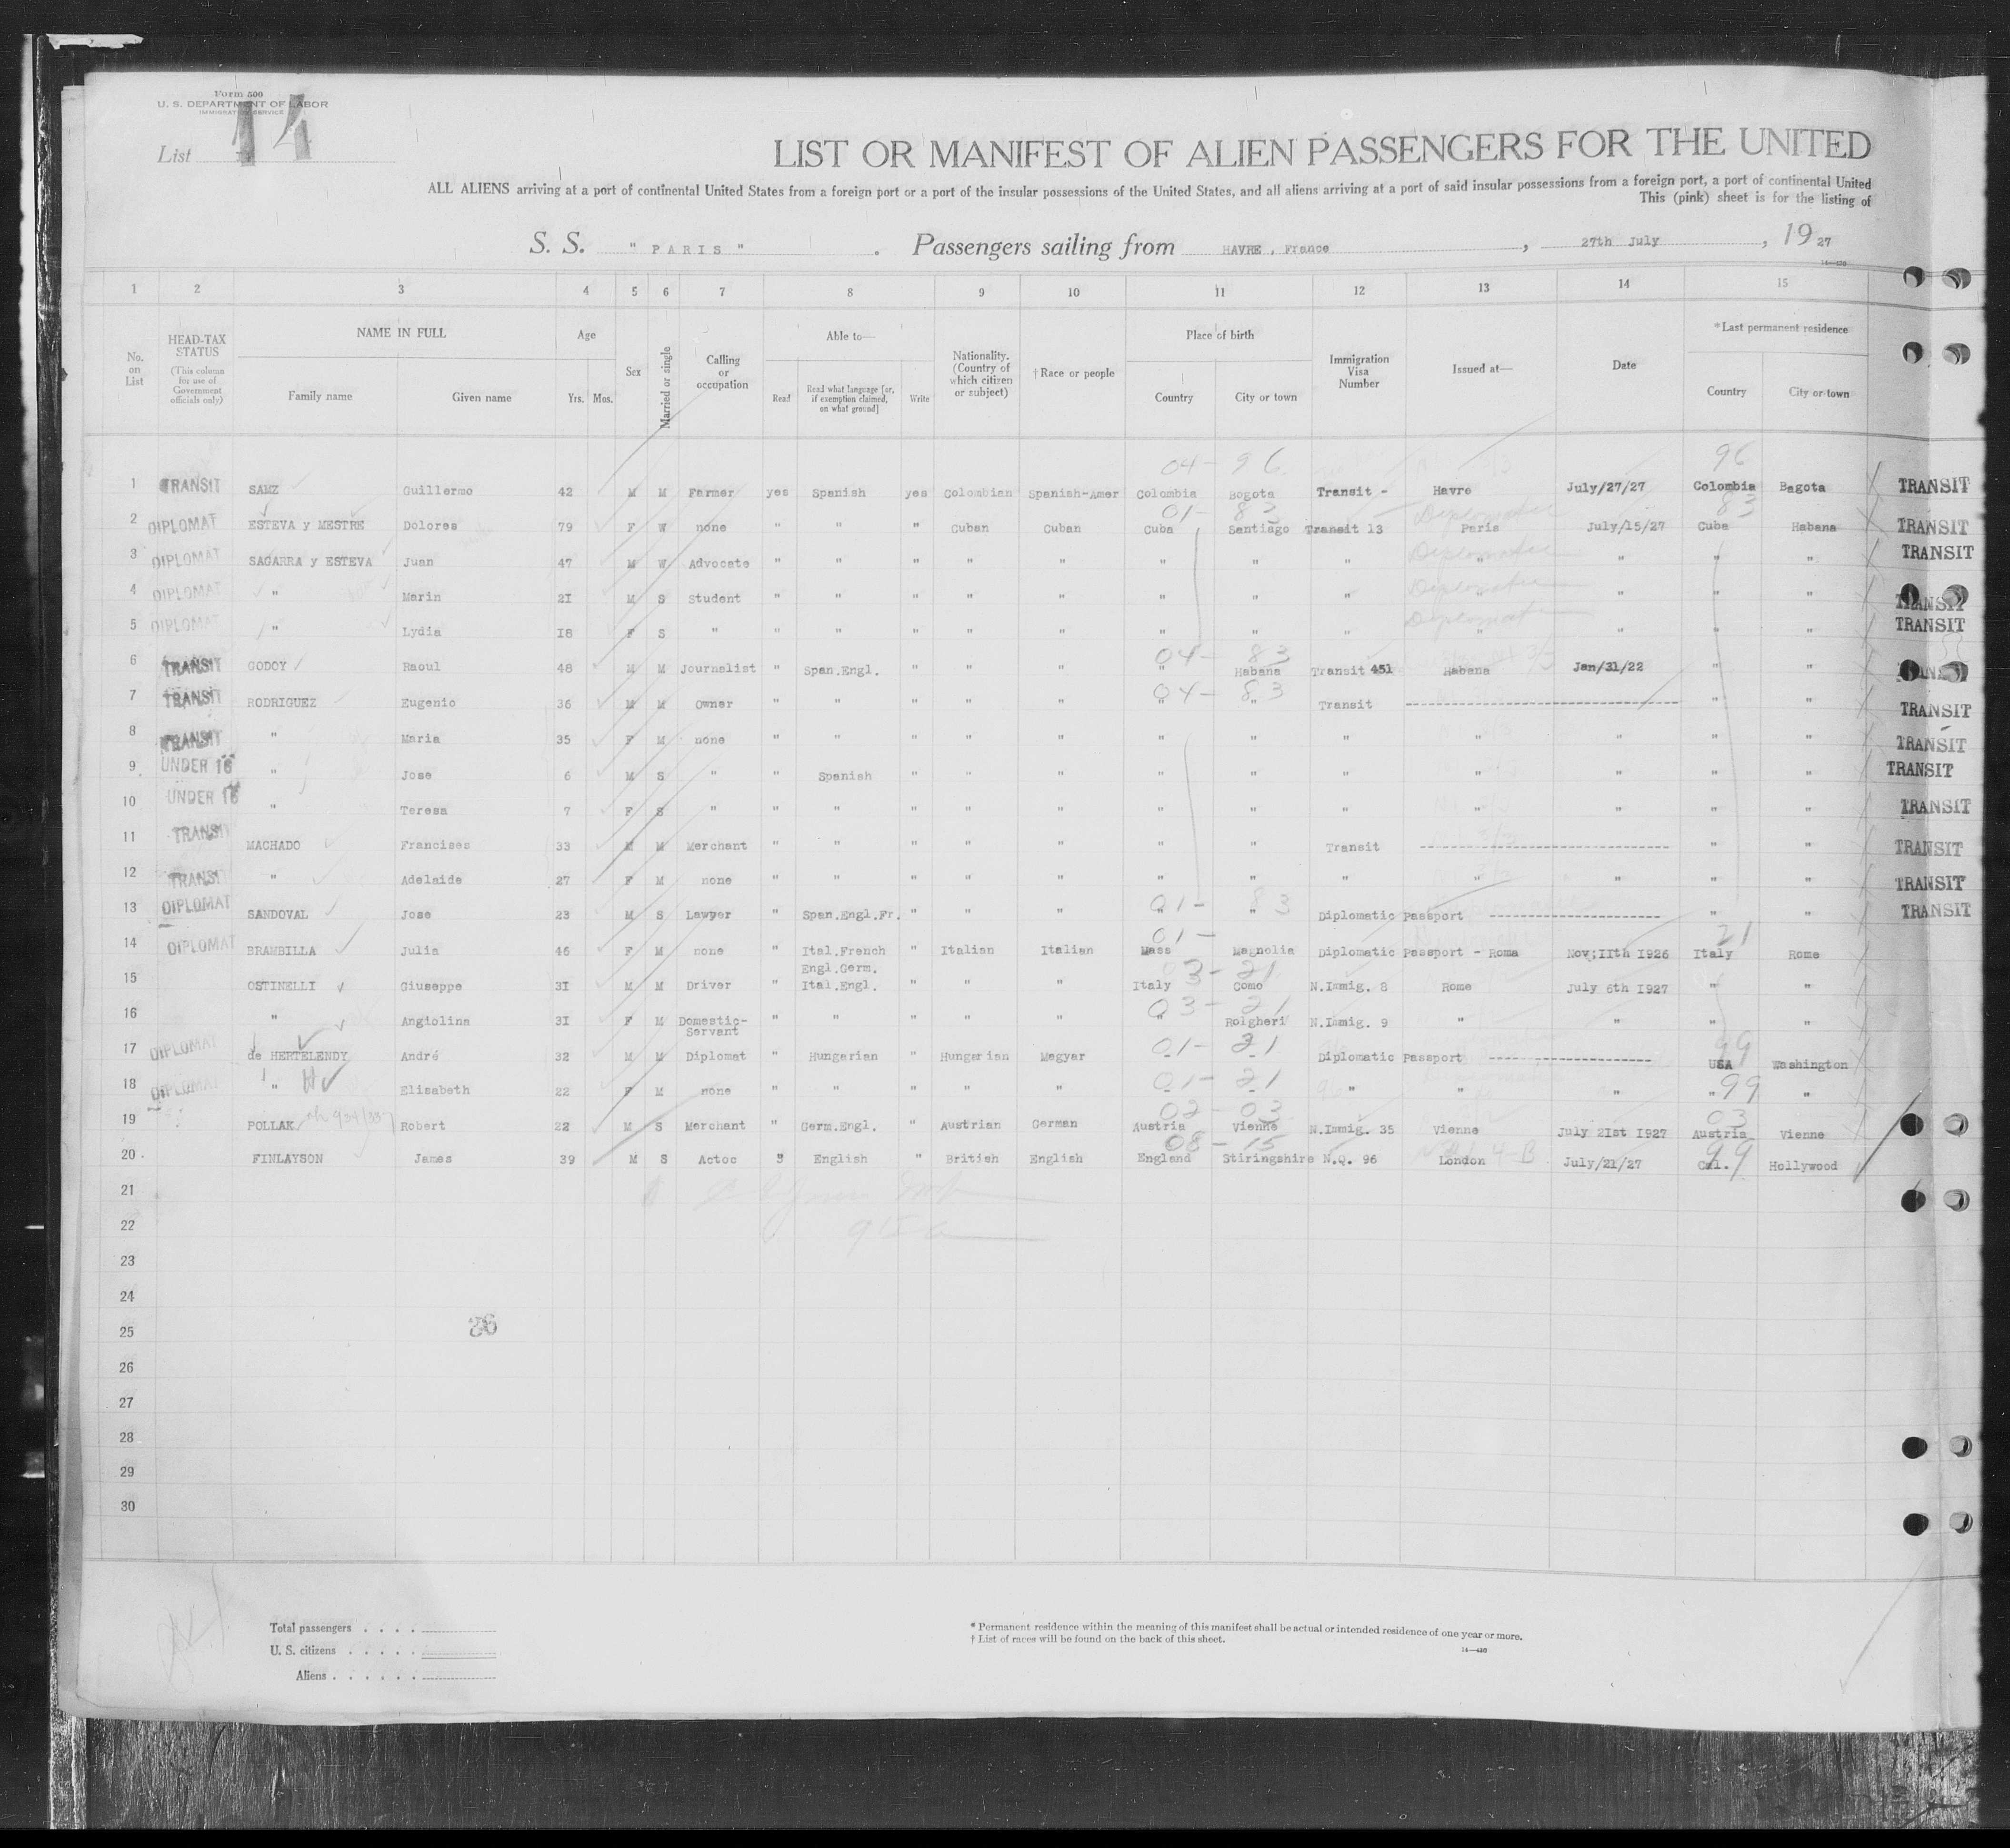 Form 500
U. S. DEPARTMENT OF LABOR
IMMIGRATION SERVICE
List 14
LIST OR MANIFEST OF ALIEN PASSENGERS FOR THE UNITED
ALL ALIENS arriving at a port of continental United States from a foreign port or a port of the insular possessions of the United States, and all aliens arriving at a port of said insular possessions from a foreign port, a port of continental United
This (pink) sheet is for the listing of
S. S. " PARIS " . Passengers sailing from HAVRE , France , 27th July , 19 27
1 2 3 4 5 6 7 8 9 10 11 12 13 14 15
No. on List HEAD-TAX STATUS (This column for use of Government officials only) NAME IN FULL Family name Given name Age Yrs. Mos. Sex Married or single Calling or occupation Able to— Read Read what language [or, if exemption claimed, on what ground] Write Nationality. (Country of which citizen or subject) †Race or people Place of birth Country City or town Immigration Visa Number Issued at— Date *Last permanent residence Country City or town
04- 96 96
1 TRANSIT SAMZ Guillermo 42 M M Farmer yes Spanish yes Colombian Spanish-Amer Colombia Bogota Transit - Havre July/27/27 Colombia Bagota TRANSIT
01- 83 Diplomatic 83
2 DIPLOMAT ESTEVA y MESTRE Dolores 79 F W none " " " Cuban Cuban Cuba Santiago Transit 13 Paris July/15/27 Cuba Habana TRANSIT
Diplomatic
3 DIPLOMAT SAGARRA y ESTEVA Juan 47 M W Advocate " " " " " " " " " " " " TRANSIT
Diplomatic
4 DIPLOMAT " Marin 2I M S Student " " " " " " " " " " " TRANSIT
Diplomat
5 DIPLOMAT " Lydia I8 F S " " " " " " " " " " " " " TRANSIT
04- 83
6 TRANSIT GODOY Raoul 48 M M Journalist " Span.Engl. " " " " Habana Transit 451 Habana Jan/31/22 " " TRANSIT
04- 83
7 TRANSIT RODRIGUEZ Eugenio 36 M M Owner " " " " " " " Transit " " TRANSIT
8 TRANSIT " Maria 35 F M none " " " " " " " " " " " " TRANSIT
9 UNDER 16 " Jose 6 M S " " Spanish " " " " " " " " " " TRANSIT
10 UNDER 16 " Teresa 7 F S " " " " " " " " " " " " " TRANSIT
11 TRANSIT MACHADO Francises 33 M M Merchant " " " " " " " Transit " " TRANSIT
12 TRANSIT " Adelaide 27 F M none " " " " " " " " " " " " TRANSIT
01- 83
13 DIPLOMAT SANDOVAL Jose 23 M S Lawyer " Span.Engl.Fr. " " " " " Diplomatic Passport " " TRANSIT
01- 21
14 DIPLOMAT BRAMBILLA Julia 46 F M none " Ital.French " Italian Italian Mass Magnolia Diplomatic Passport - Roma Nov;IIth I926 Italy Rome
Engl.Germ. 03- 21
15 OSTINELLI Giuseppe 3I M M Driver " Ital.Engl. " " " Italy Como N.Immig. 8 Rome July 6th I927 " "
03- 21
16 " Angiolina 3I F M Domestic-Servant " " " " " " Bolgheri N.Immig. 9 " " " "
01- 21 99
17 DIPLOMAT de HERTELENDY André 32 M M Diplomat " Hungarian " Hungarian Magyar - - Diplomatic Passport USA Washington
01- 21 99
18 DIPLOMAT " Elisabeth 22 F M none " " " " " - - " " " " "
02- 03 03
19 POLLAK Robert 22 M S Merchant " Germ.Engl. " Austrian German Austria Vienne N.Immig. 35 Vienne July 2Ist I927 Austria Vienne
08- 15 99
20 FINLAYSON James 39 M S Actoc " English " British English England Stiringshire N.Q. 96 London July/21/27 Cal. Hollywood
21
22
23
24
25 26
26
27
28
29
30
Total passengers . . . .
U. S. citizens . . . . .
Aliens . . . . . .
* Permanent residence within the meaning of this manifest shall be actual or intended residence of one year or more.
† List of races will be found on the back of this sheet.